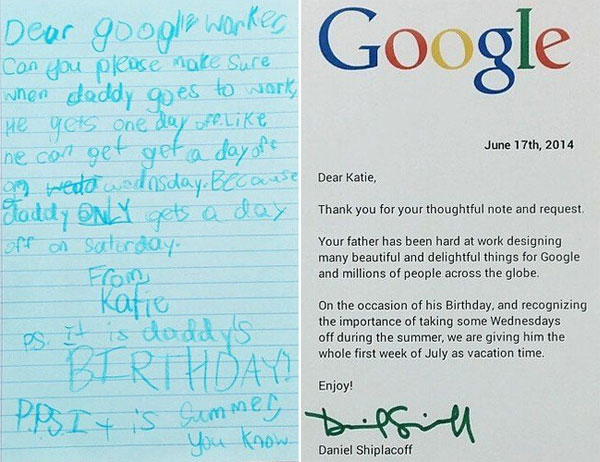 Dear google worker,
Can you please make sure
when daddy goes to work,
He gets one day off. Like
he can get get a day off
on wednsday. Because
daddy ONLY gets a day
off on saturday.
From,
Katie
P.S. It is daddy's
BIRTHDAY!
P.P.S. It is summer,
you know
Google
June 17th, 2014
Dear Katie,
Thank you for your thoughtful note and request.
Your father has been hard at work designing
many beautiful and delightful things for Google
and millions of people across the globe.
On the occasion of his Birthday, and recognizing
the importance of taking some Wednesdays
off during the summer, we are giving him the
whole first week of July as vacation time.
Enjoy!
Daniel Shiplacoff